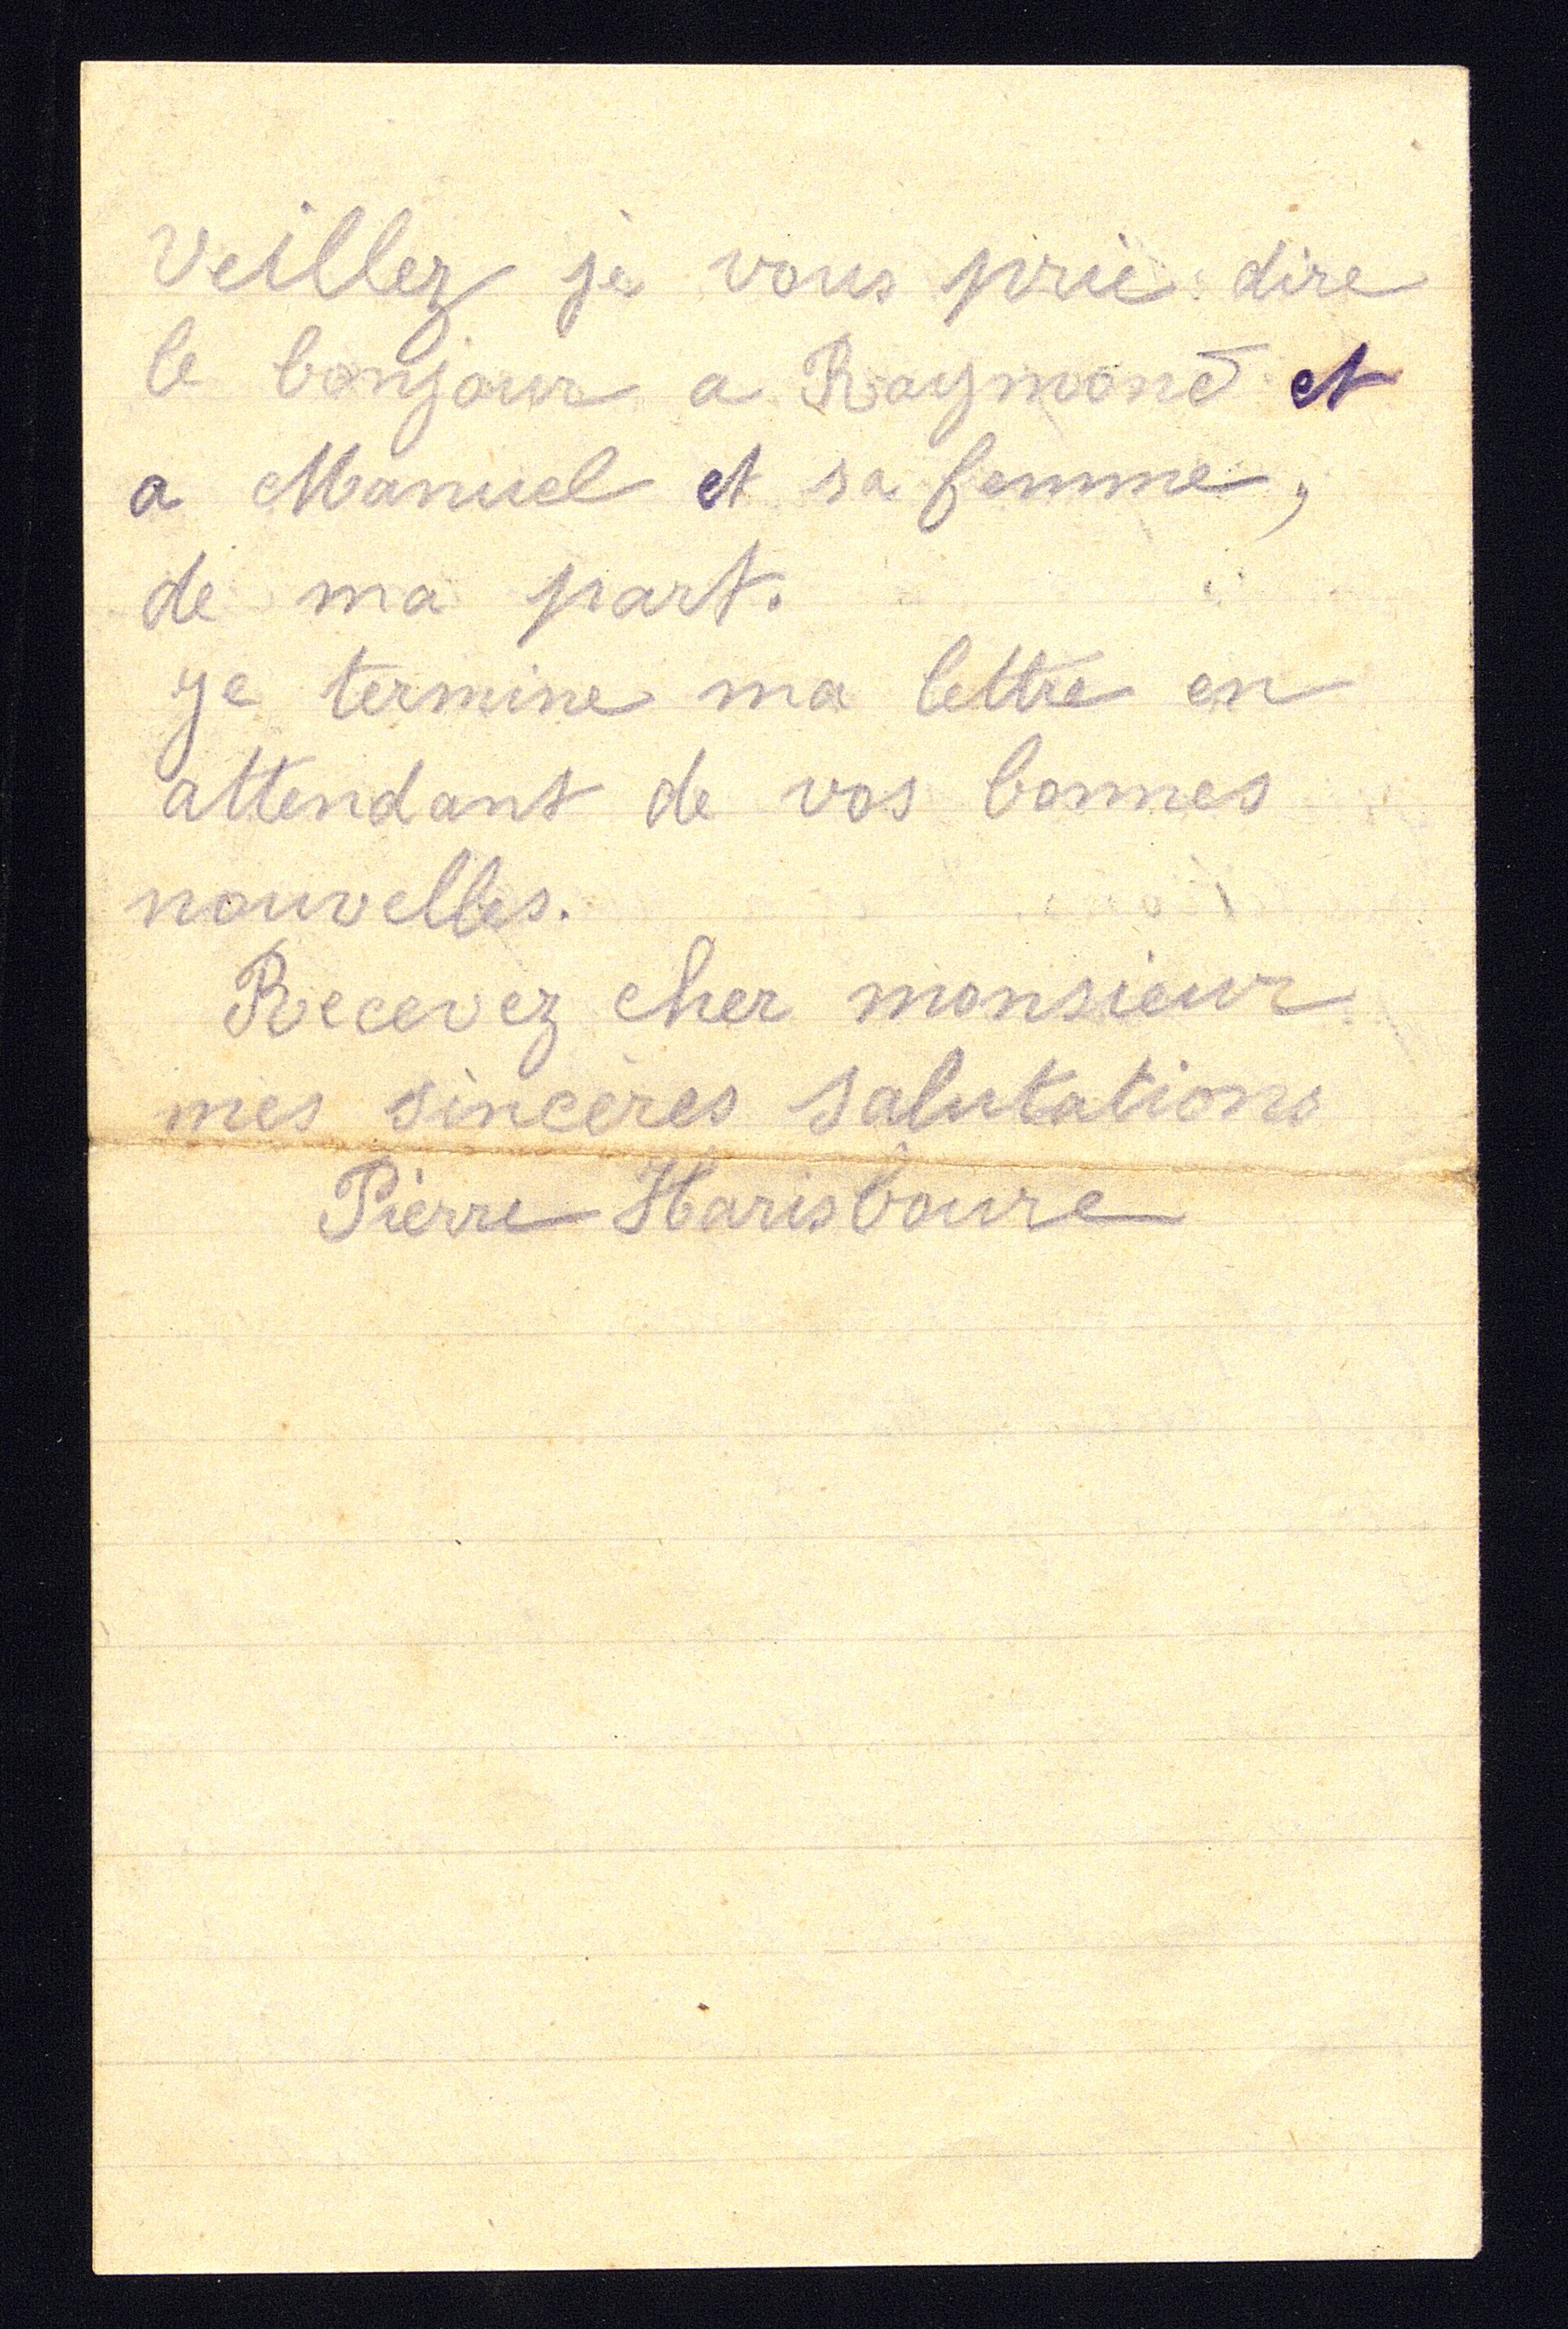 Veillez je vous prie dire
le bonjour a Raymond et
a Manuel et sa femme,
de ma part.
Je termine ma lettre en
attendant de vos bonnes
nouvelles.
Recevez cher monsieur
mes sincères salutations
Pierre Harisboure